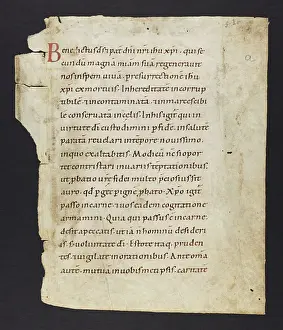 Benedictus ds & pat dni nri ihu xpi. qui se
cundu magna miam sua regenerauit
nos in spem uiua. p resurrectione ihu
xpi ex mortuis. In hereditate incorrup
tibile. & incontaminata. & inmarcescibi
le conseruata in celis. In his igit qui in
uirtute di custodimini p fide. in salute
parata reuelari in tempore nouissimo.
in quo exaltabitis. Modicu nc si opor
tet contristari in uariis teptationibus
ut pbatio ure fidei multo pciosius sit
auro. qd p igne pbato. Xpo igit
passo in carne. & uos eade cogitatione
armamini. Quia qui passus e in carne.
desiit a peccatis. ut ia n hominu desideri
is. s uoluntate di. Estote itaq. pruden
tes. & uigilate in orationibus. Ante oma
aute. mutua in uobismet ipsis. caritate